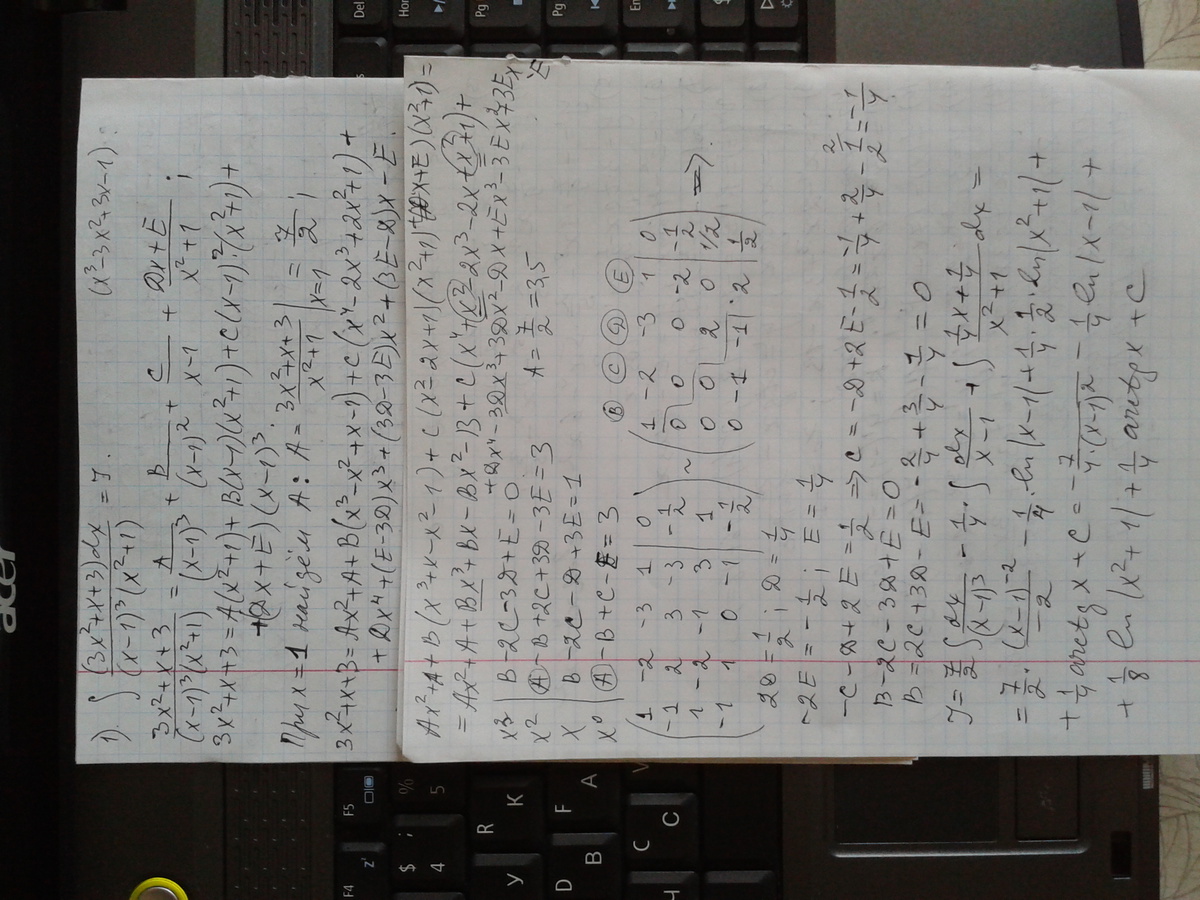 acer
1). ∫ (3x²+x+3)dx / (x-1)³(x²+1) = I.
(x³-3x²+3x-1)
(3x²+x+3) / (x-1)³(x²+1) = A/(x-1)³ + B/(x-1)² + C/(x-1) + (Dx+E)/(x²+1) ;
3x²+x+3 = A(x²+1) + B(x-1)(x²+1) + C(x-1)²·(x²+1) +
+(Dx+E)(x-1)³.
При x=1 найдём A: A = (3x²+x+3)/(x²+1) |x=1 = 7/2 ;
3x²+x+3 = Ax²+A+B(x³-x²+x-1)+C(x⁴-2x³+2x²+1)+
+ Dx⁴+(E-3D)x³+(3D-3E)x²+(3E-D)x-E.
Ax²+A+B(x³+x-x²-1)+C(x²-2x+1)(x²+1)+(Dx+E)(x³+1)=
= Ax²+A+Bx³+Bx-Bx²-B+C(x⁴+x²-2x³-2x+x²+1)+
+Dx⁴-3Dx³+3Dx²-Dx+Ex³-3Ex²+3Ex
-E
x³ | B-2C-3D+E=0
x² | A-B+2C+3D-3E=3
A = 7/2 = 3,5
x | B-2C-D+3E=1
x⁰ | A-B+C-E=3
B C D E
( 1 -2 -3 1 | 0 ) ( 1 -2 -3 1 | 0 )
( -1 2 3 -3 | -1/2 ) ~ ( 0 0 0 -2 | -1/2 ) ⇒
( 1 -2 -1 3 | 1 ) ( 0 0 2 0 | 1/2 )
( -1 1 0 -1 | -1/2 ) ( 0 -1 -1 2 | 1/2 )
2D = 1/2 ; D = 1/4
-2E = -1/2 ; E = 1/4
-C-D+2E = 1/2 ⇒ C = -D+2E-1/2 = -1/4+2/4-1/2 = -1/4
B-2C-3D+E=0
B = 2C+3D-E = -2/4+3/4-1/4 = 0
I = 7/2 ∫ dx/(x-1)³ - 1/4·∫ dx/(x-1) + ∫ (1/4x+1/4)/(x²+1) dx =
= 7/2 · (x-1)⁻²/-2 - 1/4·ln|x-1| + 1/4·1/2·ln|x²+1| +
+ 1/4 arctg x + C = - 7/4·(x-1)² - 1/4 ln|x-1| +
+ 1/8 ln|x²+1| + 1/4 arctg x + C
Del
Home
Pg
Pg
En
F4
F5
z
$
4
;
%
5
R
К
У
F
А
D
В
V
C
С
Ч